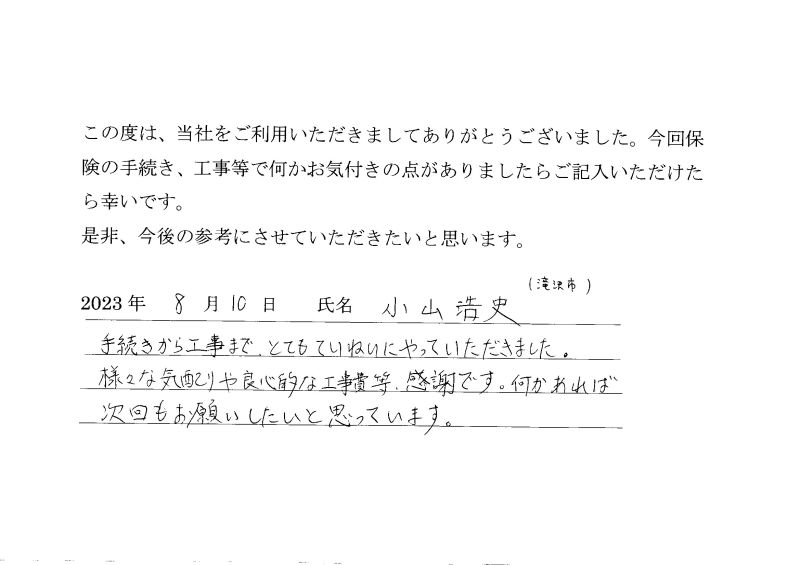 この度は、当社をご利用いただきましてありがとうございました。今回保
険の手続き、工事等で何かお気付きの点がありましたらご記入いただけた
ら幸いです。
是非、今後の参考にさせていただきたいと思います。
(滝沢市)
2023年 8月10日 氏名 小山浩史
手続きから工事まで、とてもていねいにやっていただきました。
様々な気配りや良心的な工事費等、感謝です。何かあれば
次回もお願いしたいと思っています。